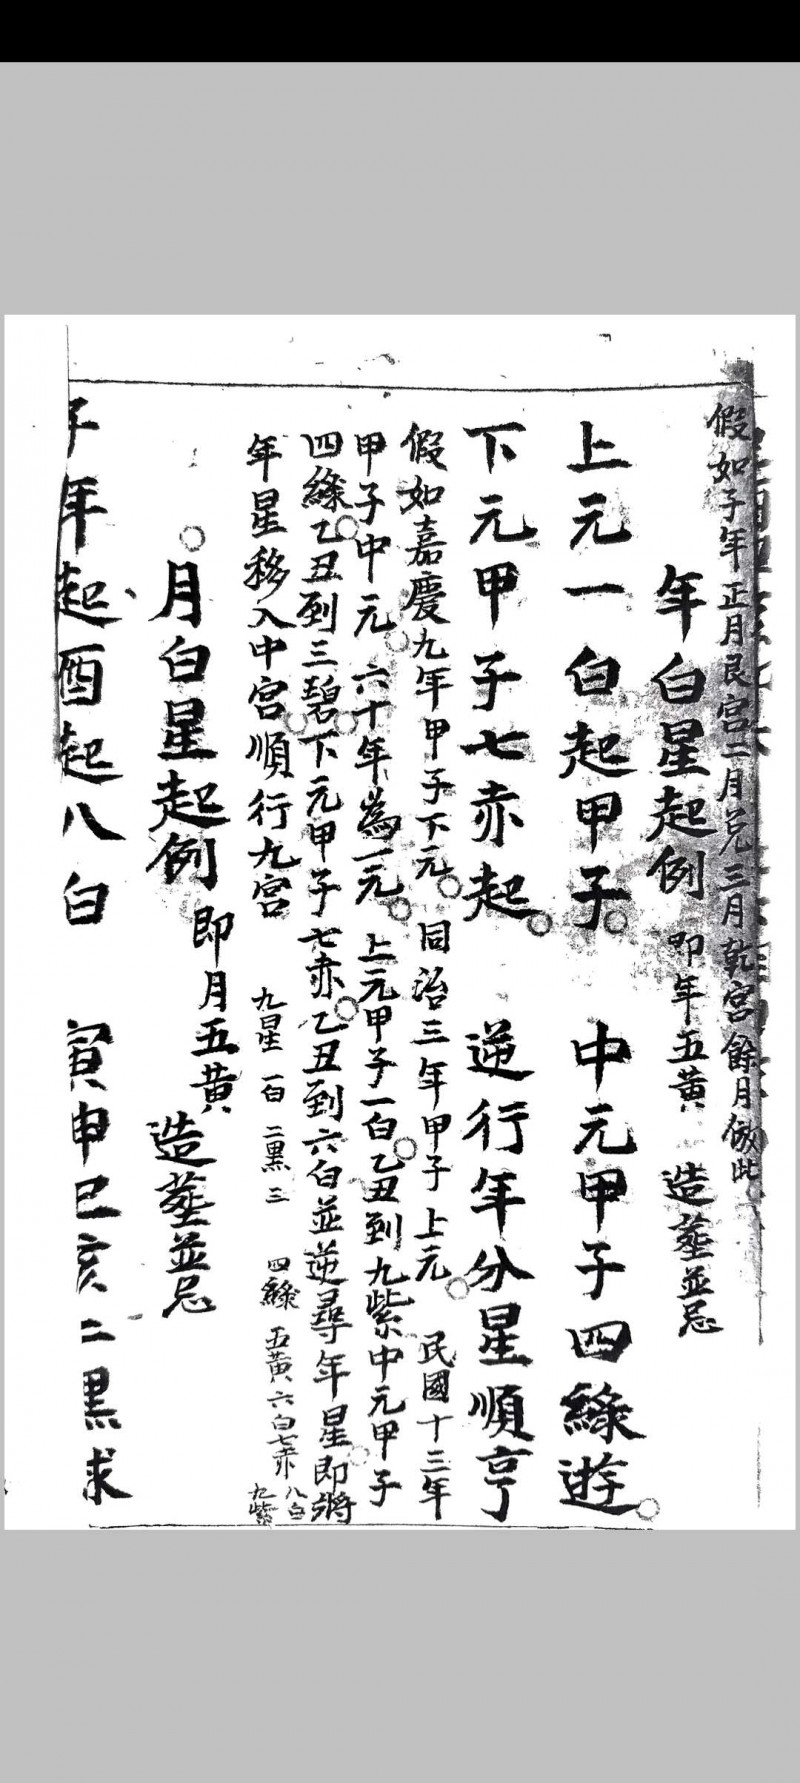 假如子年正月艮宮二月兌三月乾宮餘月倣此
年白星起例 即年五黃 造塟並忌
上元一白起甲子 中元甲子四綠遊
下元甲子七赤起 逆行年分星順亨
假如嘉慶九年甲子下元 同治三年甲子上元 民國十三年
甲子中元 六十年為一元 上元甲子一白乙丑到九紫中元甲子
四綠乙丑到三碧下元甲子七赤乙丑到六白並逆尋年星即將
年星移入中宮順行九宮 九星 一白 二黑 三 四綠 五黃 六白 七赤 八白 九紫
月白星起例 即月五黃 造塟並忌
子年起酉起八白 寅申巳亥二黑求